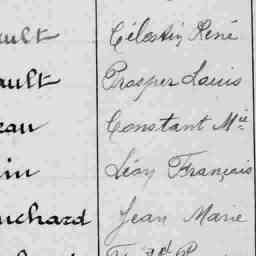 ault Célestin René
ault Prosper Louis
eau Constant Mie
in Léon François
uchard Jean Marie